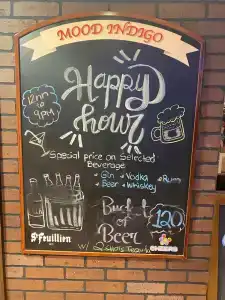 MOOD INDIGO
Happy
hour
12pm
to
9pm
Special price on Selected
Beverage
• Gin • Vodka • Rum
• Beer • Whiskey
Bucket
of
Beer
120
St Feuillien
CHEERS
w/